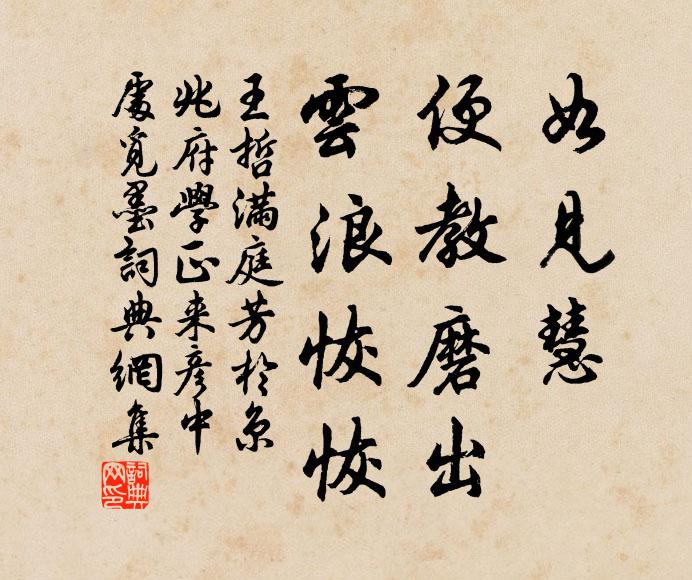 如見慧
便教磨出
雲浪恢恢
王哲滿庭芳於京
兆府學正来彥中
處覓墨詞典網集
詞典网印